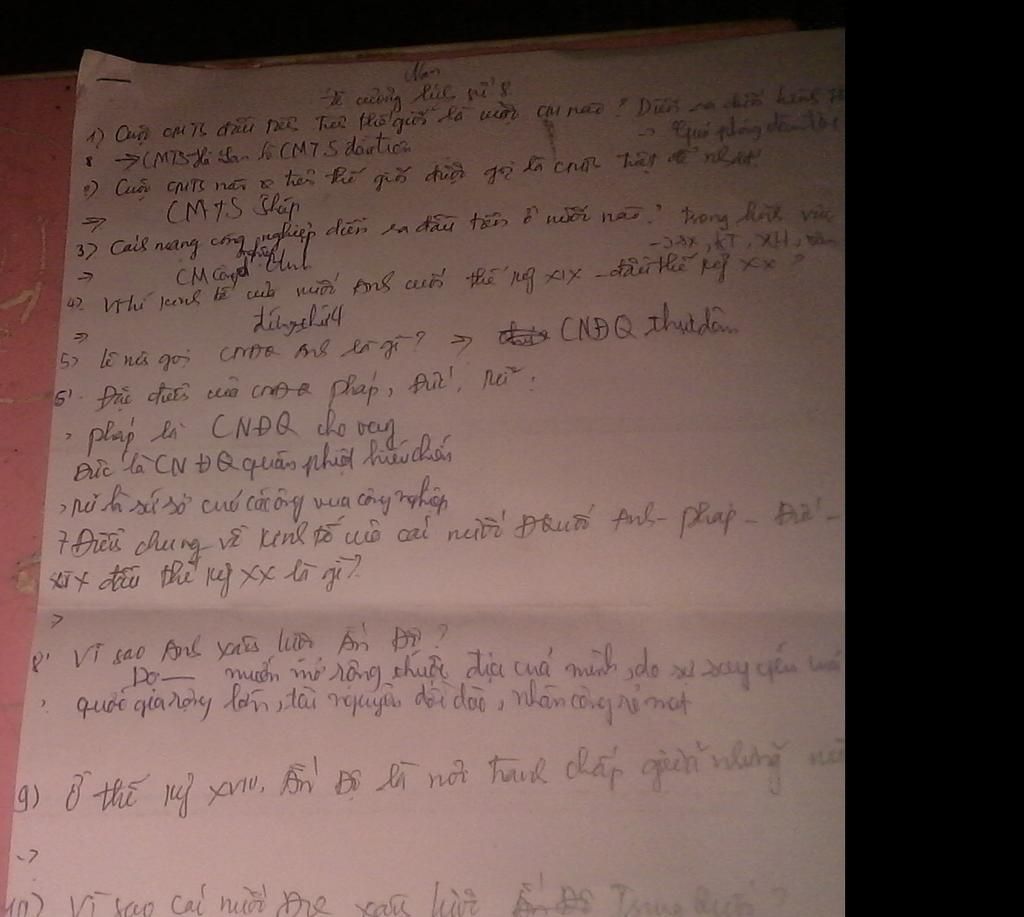 Đề cương lịch sử 8
1) Cuộc CMTS đầu tiên trên thế giới là cuộc CM nào? Diễn ra dưới hình
→ CMTS Hà Lan là CMTS đầu tiên → Giải phóng dân tộc
2) Cuộc CMTS nào trên thế giới được gọi là CMTS triệt để nhất
⇒ CMTS Pháp
3) Cách mạng công nghiệp diễn ra đầu tiên ở nước nào? Trong lĩnh vực
⇒ CM công nghiệp Anh → SX, KT, XH, văn
4) Vị trí kinh tế của nước Anh cuối thế kỷ XIX - đầu thế kỷ XX?
⇒ đứng thứ 4
5) Lê nin gọi CNĐQ Anh là gì? ⇒ CNĐQ thực dân
6) Đặc điểm của CNĐQ Pháp, Đức, Mĩ:
, pháp là CNĐQ cho vay
Đức là CNĐQ quân phiệt hiếu chiến
, Mĩ là xứ sở của các ông vua công nghiệp
7 Điểm chung về kinh tế của các nước ĐQ Anh - pháp - Đức -
XIX đầu thế kỷ XX là gì?
→
8) Vì sao Anh xâm lược Ấn Độ?
Do — muốn mở rộng thuộc địa của mình, do sự suy yếu
quốc gia rộng lớn, tài nguyên dồi dào, nhân công rẻ mạt
9) Ở thế kỷ XVIII, Ấn Độ là nơi tranh chấp giữa những
→
10) Vì sao các nước ĐQ xâm lược Trung Quốc?